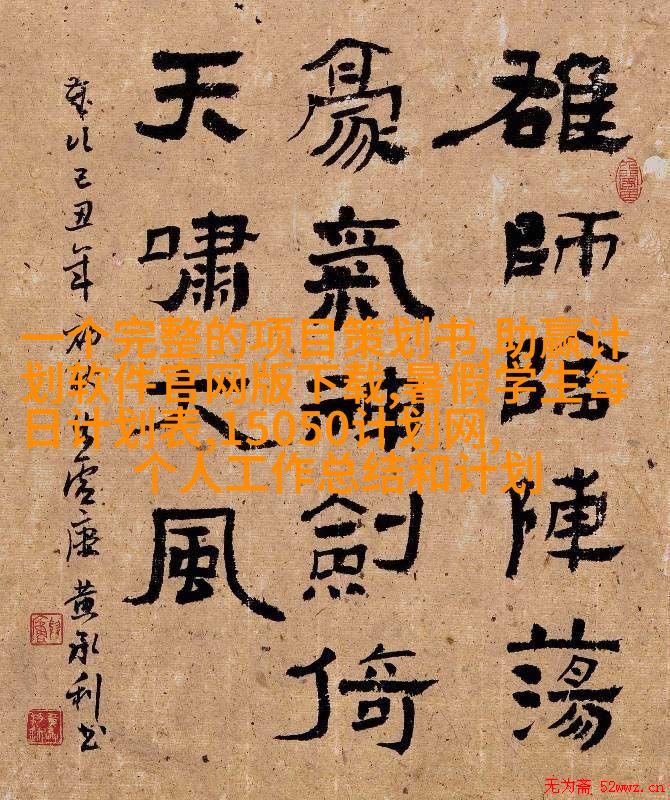 雄師臨陣蕩
豪氣神劍倚
天嘯大風
歲次己丑年 黄永利书
一个完整的项目策划书,助赢计
划软件官网版下载,暑假学生每
日计划表,15050计划网,
个人工作总结和计划
无为斋 52wwz.cn